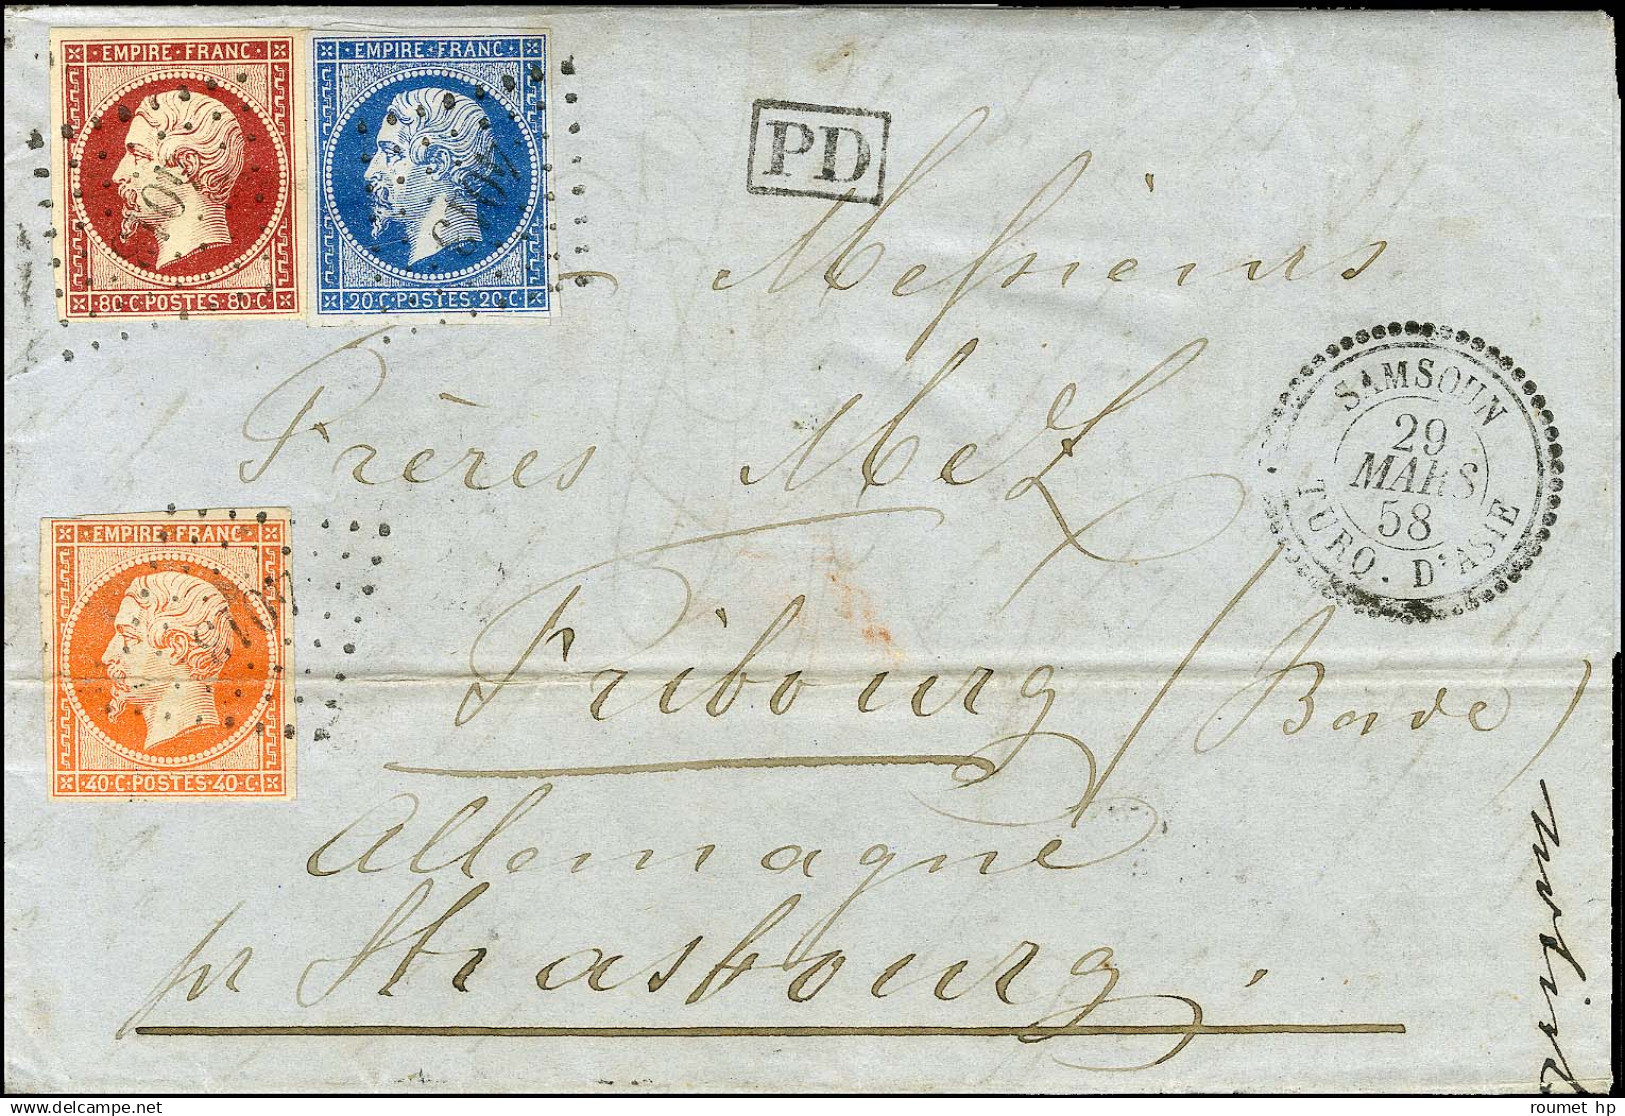 EMPIRE · FRANC
80 · C · POSTES · 80 · C
EMPIRE · FRANC
20 · C · POSTES · 20 · C
4018
PD
Messieurs
Frères Mez
SAMSOUN
29
MARS
58
TURQ. D'ASIE
EMPIRE · FRANC
40 · C · POSTES · 40 · C
Fribourg (Bade)
Allemagne
pr Strasbourg.
roumet hp